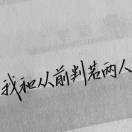 我和从前判若两人